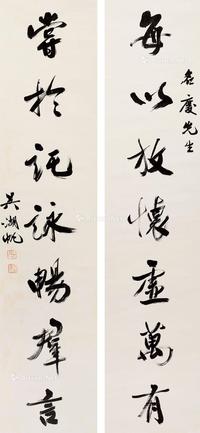 每以放懷虛萬有
嘗於託詠暢羣言
吳湖帆